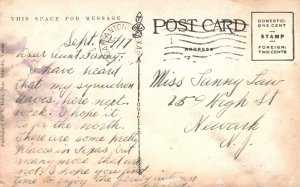 THIS SPACE FOR MESSAGE
POST CARD
DOMESTIC-
ONE CENT
STAMP
FOREIGN-
TWO-CENTS
ADDRESS
Sept. 9/18
Dear Aunt Fanny:
I have heard
that my squadron
leaves here next
week. I hope it
is for the north.
There are some pretty
places in Texas but
many more that are
not. I hope you find
time to enjoy the
Miss Fanny Law
25 High St
Newark
N. J.